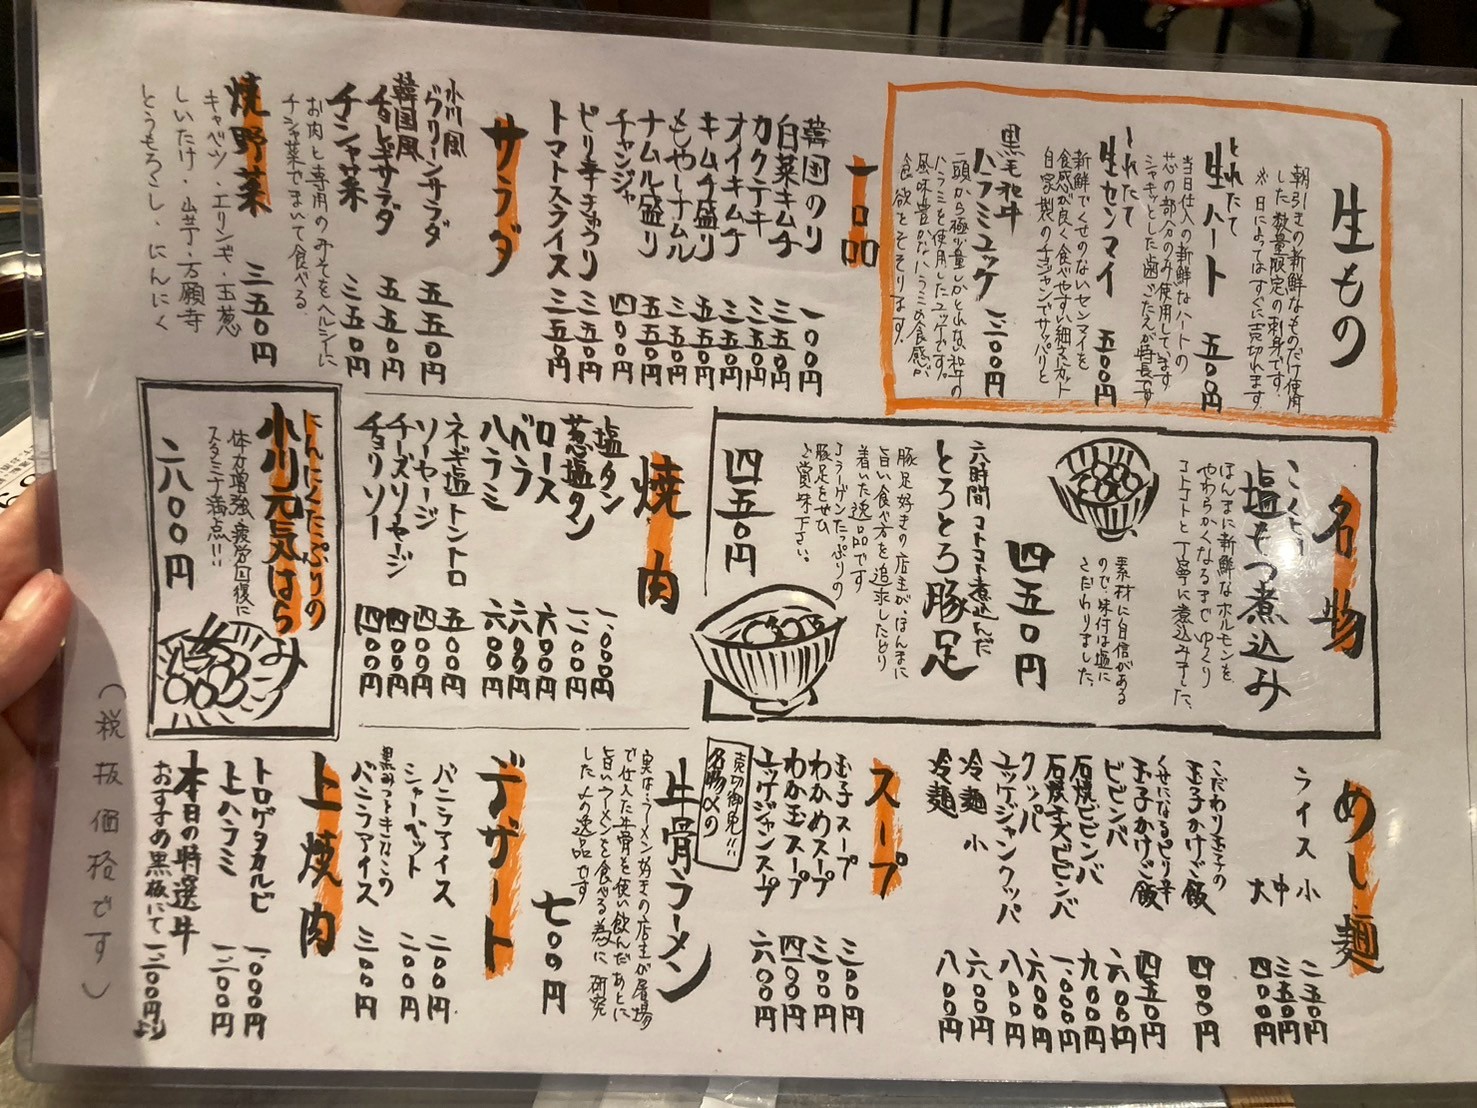 生もの
朝引きの新鮮なものだけ使用
した数量限定の刺身です。
※日によってはすぐに売切れます
とれたて
生ハート 五〇〇円
当日仕入の新鮮なハートの
芯の部分のみ使用しています
シャキッとした歯ごたえが特長です
とれたて
生センマイ 五〇〇円
新鮮でくせのないセンマイを
食感が良く食べやすい細さにカット
自家製のチョジャンでサッパリと
黒毛和牛
ハラミユッケ 一、二〇〇円
一頭から極少量しかとれない和牛の
ハラミを使用したユッケです。
風味豊かなハラミの食感が
食欲をそそります。
一品
韓国のり 一〇〇円
白菜キムチ 三五〇円
カクテキ 三五〇円
オイキムチ 三五〇円
キムチ盛り 五五〇円
もやしナムル 三五〇円
ナムル盛り 五五〇円
チャンジャ 四〇〇円
ピリ辛きゅうり 三五〇円
トマトスライス 三五〇円
サラダ
小川風
グリーンサラダ 五五〇円
韓国風
チョレギサラダ 五五〇円
チシャ菜 三五〇円
お肉と専用のみそをヘルシーに
チシャ菜でまいて食べる
焼野菜 三五〇円
キャベツ・エリンギ・玉葱
しいたけ・山芋・万願寺
とうもろこし・にんにく
名物
こくとろ
塩もつ煮込み
ほんまに新鮮なホルモンを
やわらかくなるまでゆっくり
コトコトと丁寧に煮込みました。
素材に自信がある
ので、味付は塩に
こだわりました。
四五〇円
六時間コトコト煮込んだ
とろとろ豚足
豚足好きの店主が、ほんまに
旨い食べ方を追求したどり
着いた逸品です
コラーゲンたっぷりの
豚足をぜひ
ご賞味下さい。
四五〇円
焼肉
塩タン 一、〇〇〇円
葱塩タン 一、一〇〇円
ロース 六〇〇円
バラ 六〇〇円
ハラミ 六〇〇円
ネギ塩トントロ 五〇〇円
ソーセージ 四〇〇円
チーズソーセージ 四〇〇円
チョリソー 四〇〇円
にんにくたっぷりの
小川元気はらみ
体力増強・疲労回復に
スタミナ満点!!
一六〇〇円
めし 麺
ライス 小 二五〇円
中 三五〇円
大 四〇〇円
こだわり玉子の
玉子かけご飯 四〇〇円
くせになるピリ辛
玉子かけご飯 四五〇円
ビビンバ 六〇〇円
石焼ビビンバ 九〇〇円
石焼チーズビビンバ 一、〇〇〇円
クッパ 六〇〇円
ユッケジャンクッパ 八〇〇円
冷麺 小 六〇〇円
冷麺 八〇〇円
スープ
玉子スープ 三〇〇円
わかめスープ 三〇〇円
わか玉スープ 四〇〇円
ユッケジャンスープ 六〇〇円
売切御免!!
名物〆の
牛骨ラーメン
実は、ラーメン好きの店主が屠場
で仕入た牛骨を使い飲んだあとに
旨いラーメンを食べる為に研究
した〆の逸品です
七〇〇円
デザート
バニラアイス 二〇〇円
シャーベット 二〇〇円
黒みつときなこの
バニラアイス 三〇〇円
上焼肉
トロゲタカルビ 一、〇〇〇円
上ハラミ 一、二〇〇円
本日の特選牛
おすすめ黒板にて 一、二〇〇円より
(税抜価格です)